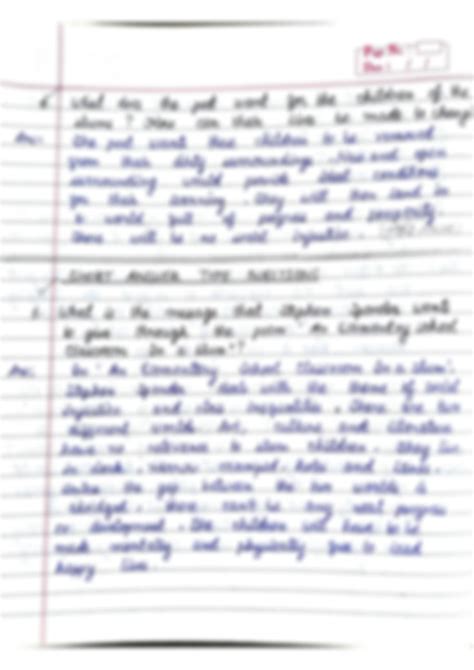 Page No.:
Date: / /
6. What does the poet want for the children of the
slums? How can their lives be made to change
Ans: The poet wants these children to be removed
from their dirty surroundings. New and open
surrounding would provide ideal conditions
for their learning. They will then lead in
to world full of progress and prosperity.
There will be no social injustice.
SHORT ANSWER TYPE QUESTIONS
1. What is the message that Stephen Spender wants
to give through the poem 'An Elementary School
Classroom in a Slum'?
Ans: In 'An Elementary School Classroom In a Slum',
Stephen Spender deals with the theme of social
injustice and class inequalities. There are two
different worlds. Art, culture and literature
have no relevance to slum children. They live
in dark, narrow cramped, holes and lanes.
Unless the gap between the two worlds is
abridged, there can't be any real progress
or development. The children will have to be
made mentally and physically free to lead
happy live.